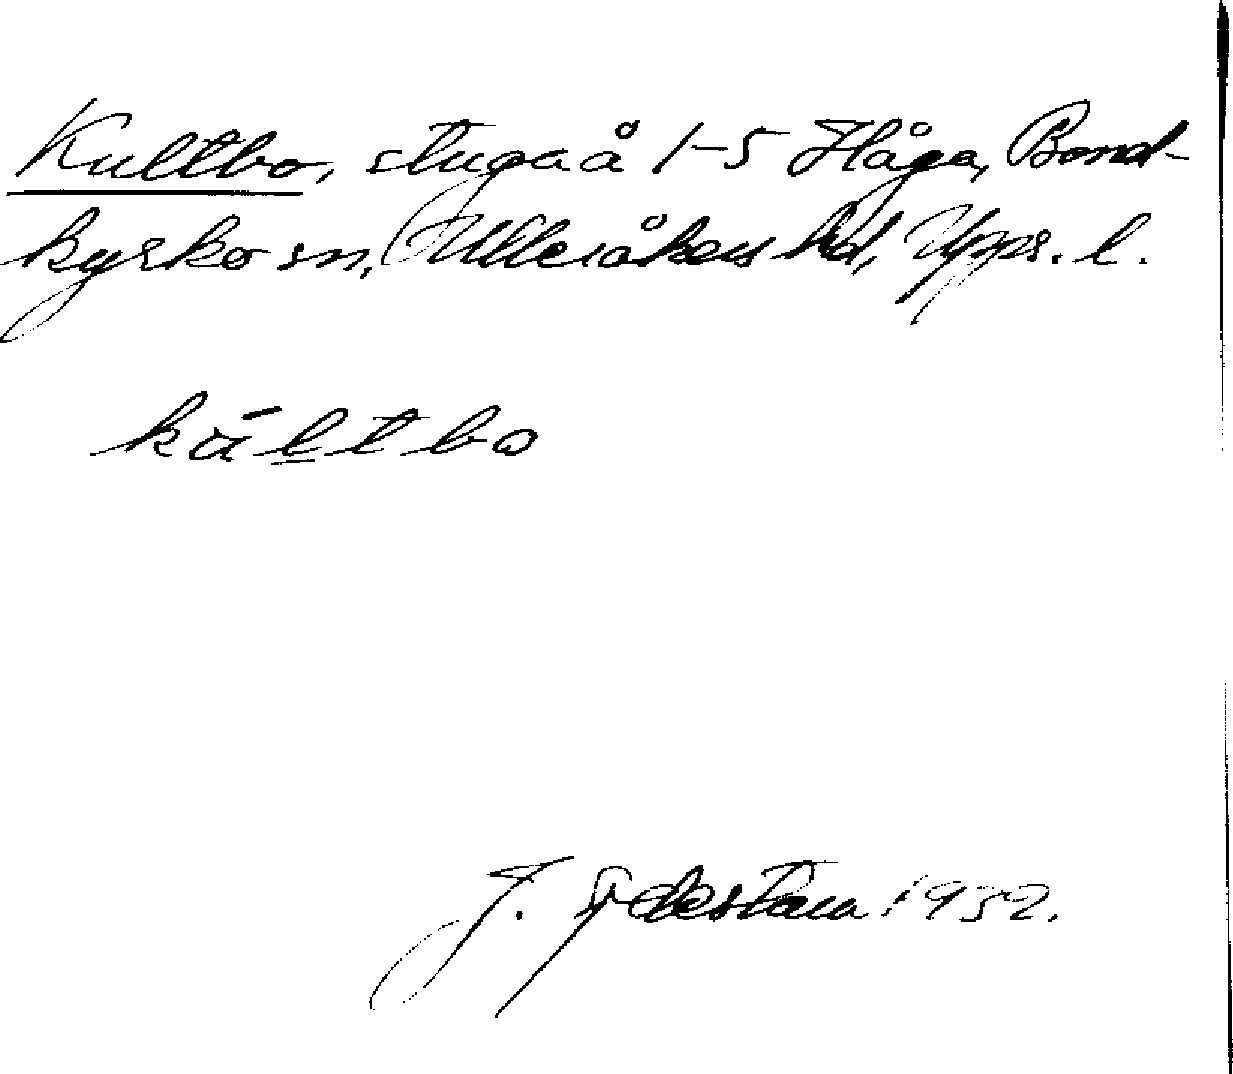 Kultbo, stuga å 1-5 Håga, Bond-
kyrko sn, Ulleråkers hd, Upps. l.
kältbo
J. 1952.